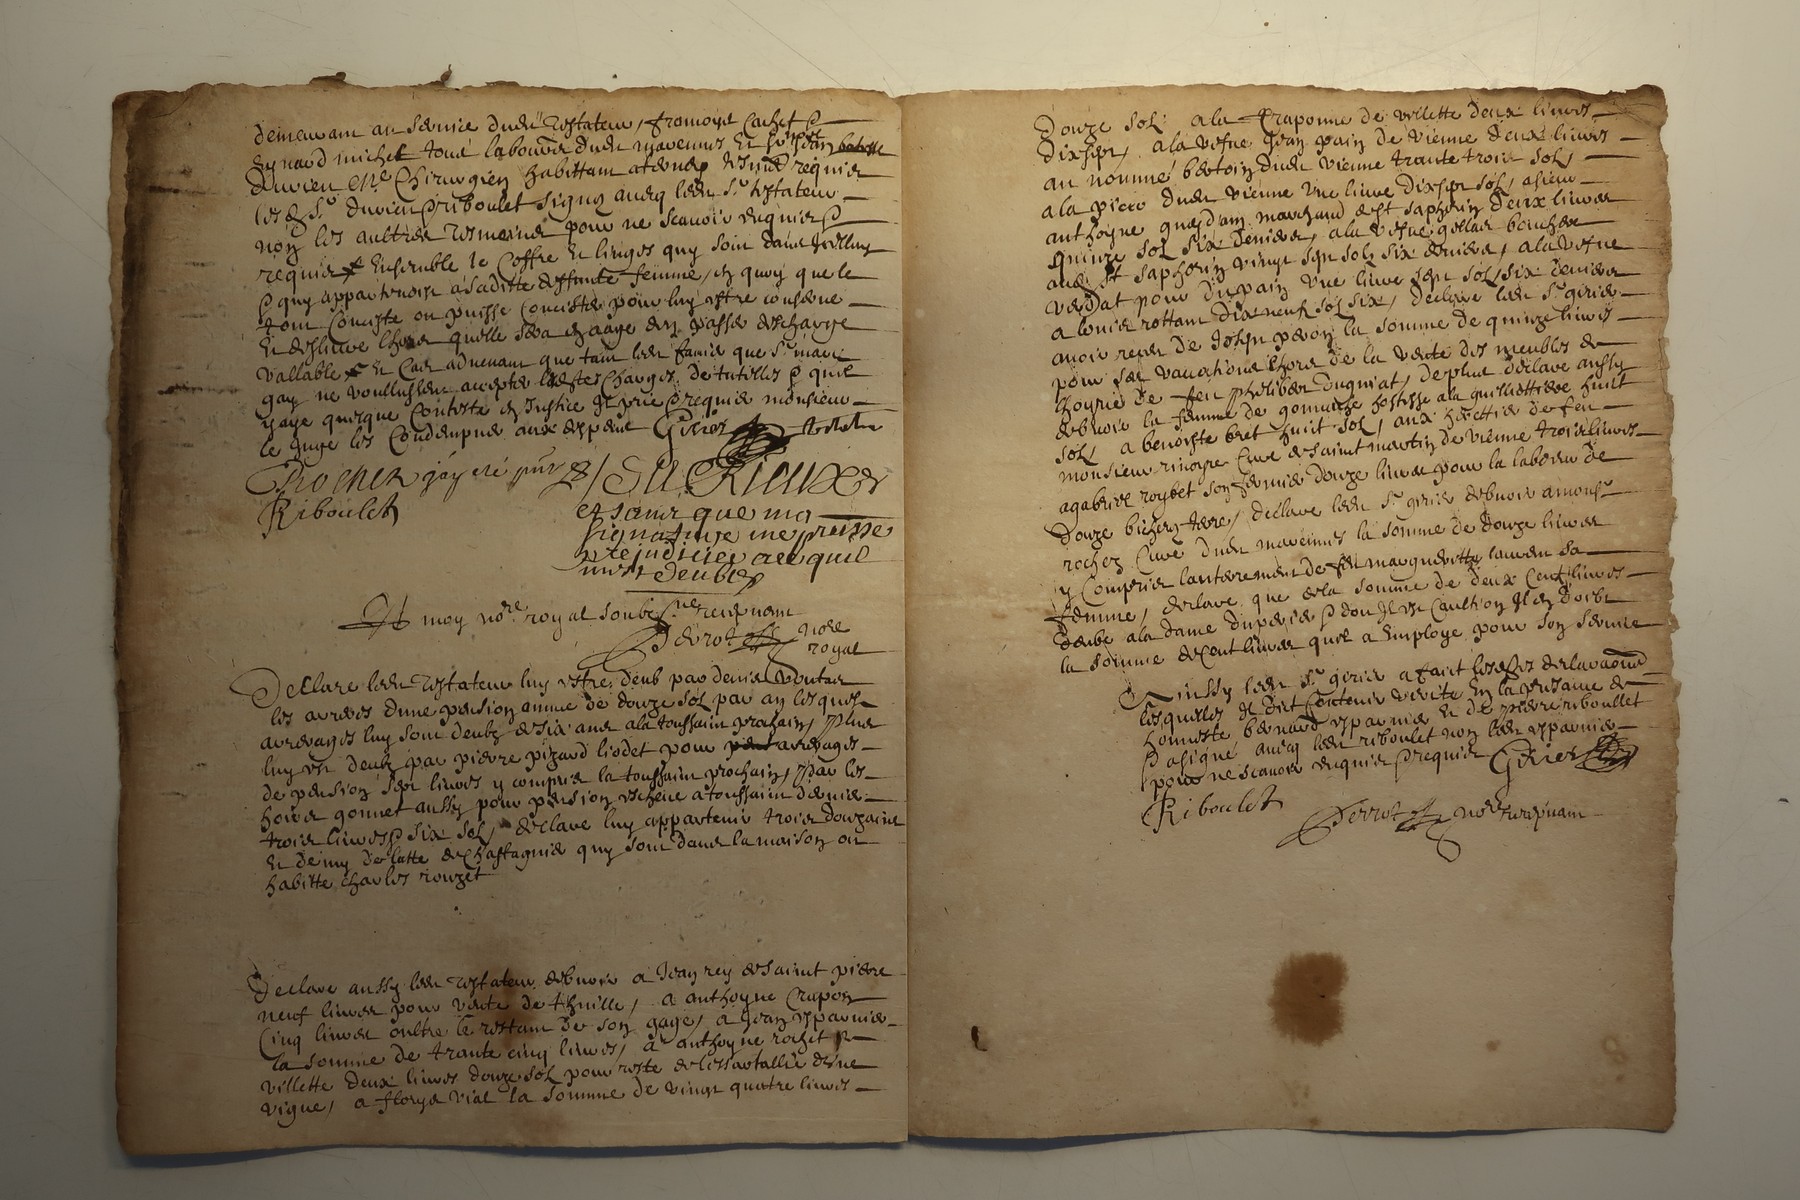 demeurant au service dudit testateur, fromont Cachet &
Eynard michel toué laboureur dudit mavenus Et sr Jean batiste
duvieu Me Chirurgien habittant a ternay tesmoins requis
les & sr duvieu & riboulet signes aveq ledit sr testateur
non les aultres tesmoins pour ne scavoir enquis &
requis Ensemble le Coffre Et linges quy sont dans
& quy appartenoit a saditte deffunte femme, en quoy que le
tout Conciste ou puisse Concister pour luy estre conserve
Et deslivre lhors quelle sera en aage en passer descharge
vallable Et Cas advenant que tant ledit famis que sr marc
gay ne voullussent accepter lesdites Charges de tutelles & quil
y aye quelque Conteste en Justice Il prie & requier monsieur
le Juge les Condempner aux despens Girier testateur
Rochez jay été pnt Du Rieux
Riboulet et sans que ma
signature me puisse
prejudicier a ce quil
mest deub
Et moy nore royal soubsne recepvant
Perrot nore
royal
Declare ledit testateur luy estre deub par denis voutar
les arreres dune pension annue de douze sol par an lesquels
arrerages luy sont deubz de six ans a la toussaint prochain, plus
luy est deubz par pierre pizard liodet pour arrerages
de pension sept livres y compris la toussaint prochain, par les
hoirs gonnet aussy pour pension escheue a toussaint dernier
trois livres & six sol, declare luy appartenir trois douzaine
Et demy de latte de Chastagnier quy sont dans la maison ou
habitte charles rouzet
Declare aussy ledit testateur debvoir a Jean rey de saint pierre
neuf livres pour vente de thuille, a anthoyne Crapon
Cinq livres oultre le restant de son gage, a Jean esparnier
la somme de trante cinq livres, a anthoyne rochet de
villette deux livres douze sol pour reste de lessartallie dune
vigne, a florys vial la somme de vingt quatre livres
Douze sol a la fraponne de villette deux livres
dixsept, a la vefve Jean pain de vienne deux livres
au nommé bertoin dudit vienne trante trois sol,
a la piere dudit vienne une livre dixsept sol, a sieur
anthoyne marchand de st saphorin deux livres
quinze sol six deniers, a la vefve gellas boucher
audit st saphorin vingt sept sol six deniers, a la vefve
verdat pour du pain une livre sept sol six deniers
a louis rottant dix neuf sol six, declare ledit sr girier
avoir receu de Joseph peron la somme de quinze livres
pour ses vacations lhors de la vente des meubles de
hoyrie de feu philiber duguiat, de plus declare aussy
debvoir la femme de gomarche hostesse a la guillottiere huit
sol, a benoiste bret huit sol, aux heritiers de feu
monsieur rinoyre Curé de saint martin de vienne trois livres
a gabriel roybet son fermier douze livres pour la labeur de
douze bicherees terre, declare ledit sr girier debvoir a monsr
rochez Curé dudit mavenus la somme de douze livres
y Compris lanterrement de feu margueritte laurent sa
femme, declare que de la somme de deux Cent livres
deube a la dame duperier & dont Il est Caultion Il en doibt
la somme de cent livres quil a Employé pour son service
Ainssy ledit sr girier a faict lesdites declarations
lesquelles Il dit Contenir verite En la presance de
honneste bernard esparnier Et de pierre riboullet
& a signé aveq ledit riboulet non ledit esparnier
pour ne scavoir enquis & requis Girier
Riboulet Perrot nore recepvant